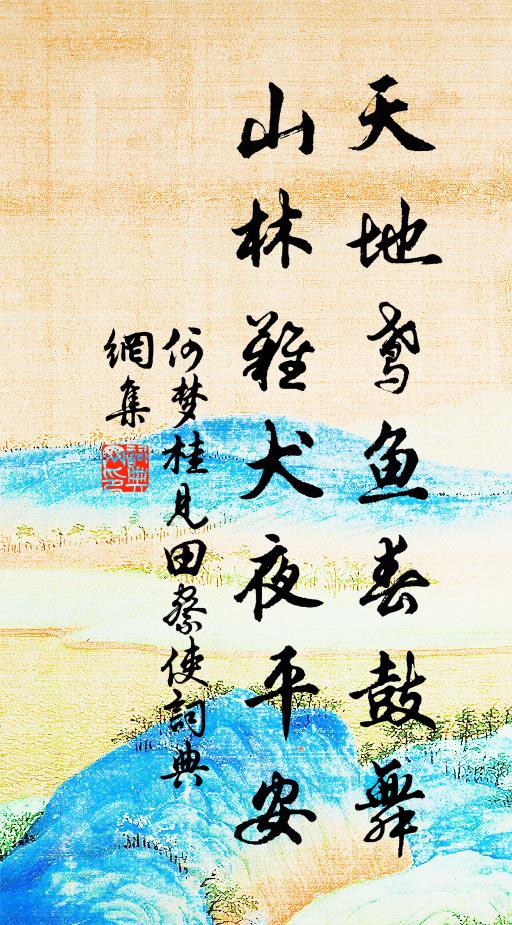 天地鸢鱼春鼓舞
山林雞犬夜平安
何梦桂见田祭使詞典
網集